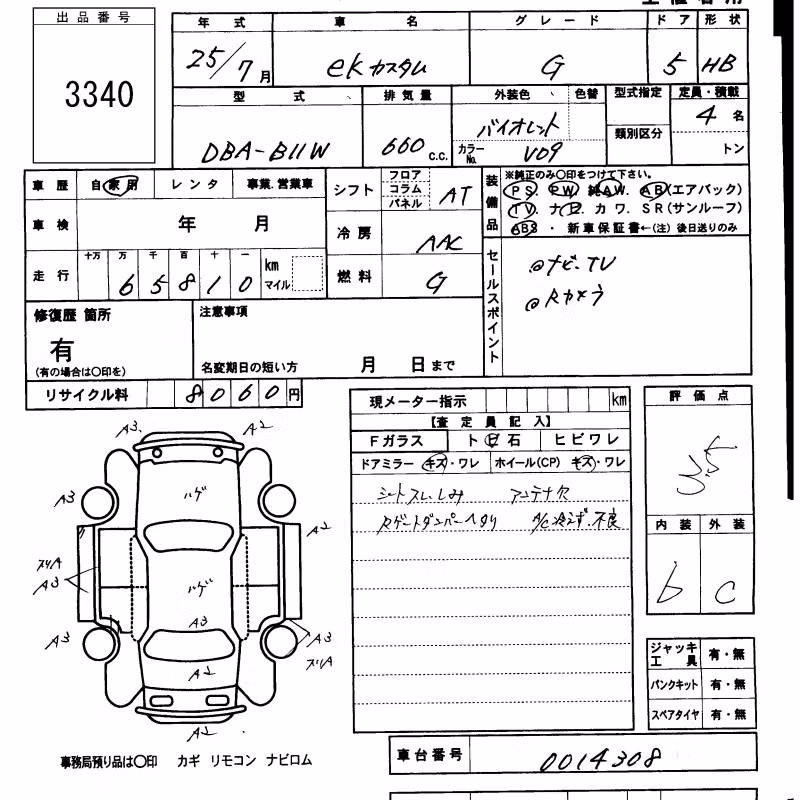 出品番号
3340
年式 車名 グレード ドア 形状
25/7月 ekカスタム G 5 HB
型式 排気量 外装色 色替 型式指定 定員・積載
DBA-B11W 660c.c. バイオレット 類別区分 4名
カラーNo. V09 トン
車歴 自家用 レンタ 事業.営業車
車検 年 月
走行 十万 万 千 百 十 一 km マイル
65810
シフト フロア コラム パネル AT
冷房 AAC
燃料 G
装備品 ※純正のみ〇印をつけて下さい。
PS. PW. 純AW. AB(エアバック)
TV. ナビ. カワ. SR(サンルーフ)
ABS・新車保証書←(注)後日送りのみ
セールスポイント
@ナビ、TV
@Rカメラ
修復歴 箇所
有
(有の場合は〇印を)
注意事項
名変期日の短い方 月 日まで
リサイクル料 8060円
現メーター指示 km
【査定員記入】
Fガラス ト日石 ヒビワレ
ドアミラー キズ・ワレ ホイール(CP) キズ・ワレ
シートスレ、しみ アンテナ欠
Rゲートダンパーヘタリ A/C冷えず.不良
評価点
3.5
内装 外装
b c
A3 A2
ハゲ
A3 A2
ズリA
A3
ハゲ
A3
A3 A3
ズリA
A2
A2
ジャッキ工具 有・無
パンクキット 有・無
スペアタイヤ 有・無
事務局預り品は〇印 カギ リモコン ナビロム
車台番号 0014308